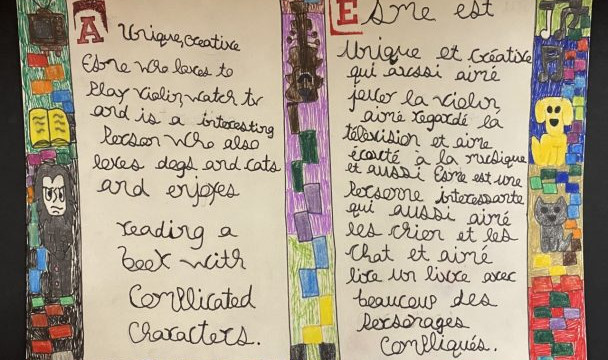 A Unique, creative
Esme who loves to
Play violin, watch tv
and is a interesting
Person who also
loves dogs and cats
and enjoys
reading a
book with
Complicated
Characters.
Esme est
Unique et créative
qui aussi aimé
jouer la violon,
aimé regardé la
télévision et aime
écouté à la musique
et aussi Esme est une
Personne interessante
qui aussi aimé
les chien et les
chat et aimé
lire un livre avec
beaucoup des
Personages
Compliqués.